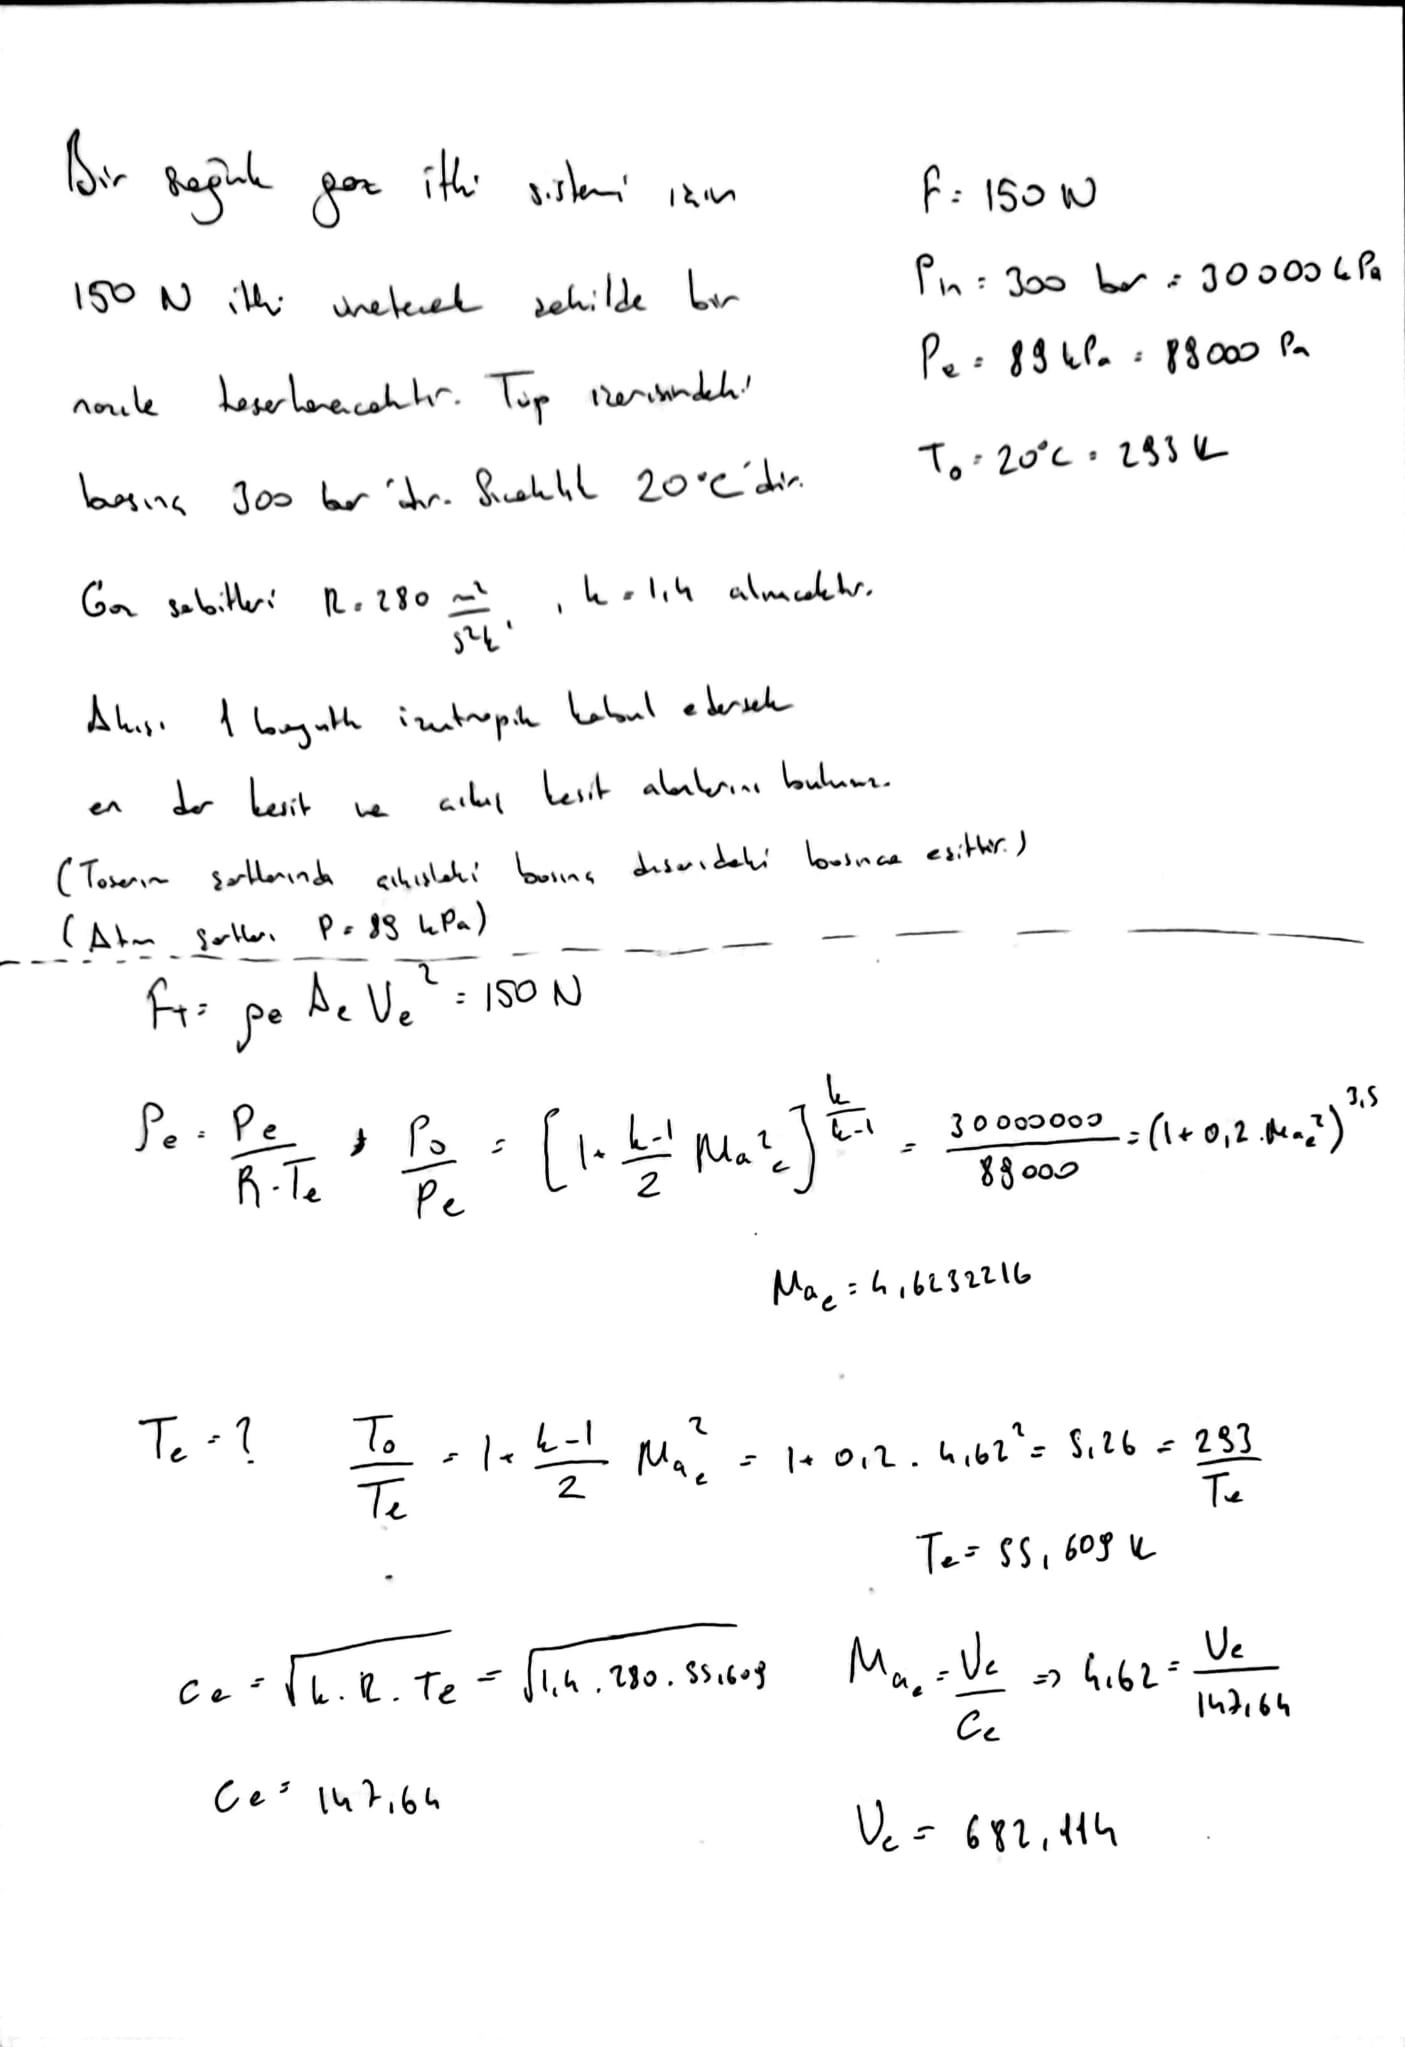 Bir soğuk gaz itki sistemi için
150 N itki üretecek şekilde bir
nozile tasarlanacaktır. Tüp içerisindeki
basınç 300 bar'dır. Sıcaklık 20°C'dir.
Gaz sabitleri R = 280 m²/s²k, , k = 1,4 alınacaktır.
Akışı 1 boyutlu izentropik kabul edersek
en dar kesit ve çıkış kesit alanlarını bulunuz.
(Tasarım şartlarında çıkıştaki basınç dışarıdaki basınca eşittir.)
(Atm şartları P = 89 kPa)
F = 150 N
Pin = 300 bar = 30000 kPa
Pe = 89 kPa = 89000 Pa
To = 20°C = 293 K
FT = ρe Ae Ve² = 150 N
ρe = Pe / R.Te , Po / Pe = [1 + k-1/2 Mae²]^k/k-1 = 30000000 / 89000 = (1 + 0,2 . Mae²)^3,5
Mae = 4,6232216
Te = ? To / Te = 1 + k-1/2 Mae² = 1 + 0,2 . 4,62² = 5,26 = 293 / Te
Te = 55,609 K
Ce = √k.R.Te = √1,4 . 280 . 55,609 Mae = Ve / Ce => 4,62 = Ve / 147,64
Ce = 147,64
Ve = 682,114